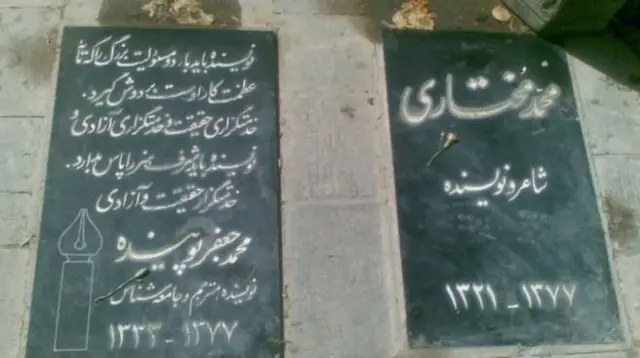 محمد مختاری
شاعر و نویسنده
۱۳۲۱ - ۱۳۷۷
نویسنده باید بار دو مسئولیت بزرگ را که تمام
عظمت کار اوست بر دوش گیرد.
خدمتگزاری حقیقت و خدمتگزاری آزادی و
نویسنده باید شرف هنر را پاس دارد.
خدمتگزار حقیقت و آزادی
محمد جعفر پوینده
نویسنده مترجم و جامعه شناس
۱۳۳۳ - ۱۳۷۷